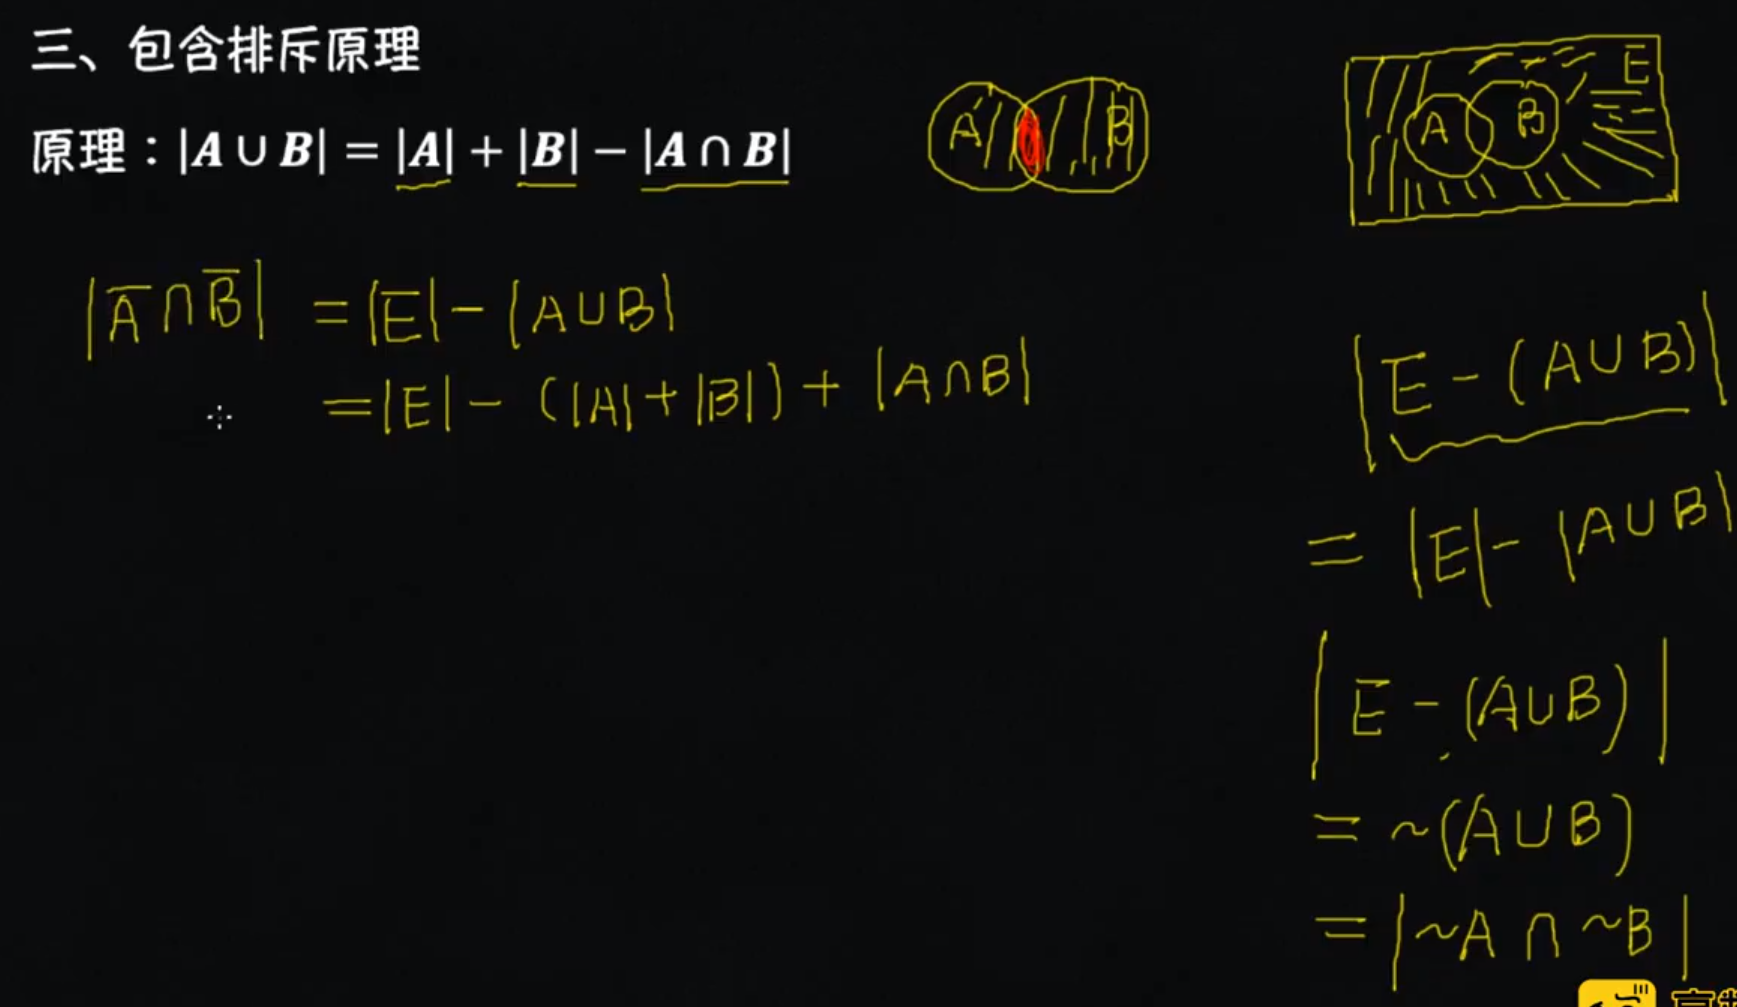 三、包含排斥原理
原理：|A ∪ B| = |A| + |B| − |A ∩ B|
A B
A B E
|A̅ ∩ B̅| = |E| − |A∪B|
= |E| − (|A| + |B|) + |A∩B|
|E − (A∪B)|
= |E| − |A∪B|
|E − (A∪B)|
= ~(A∪B)
= |~A ∩ ~B|